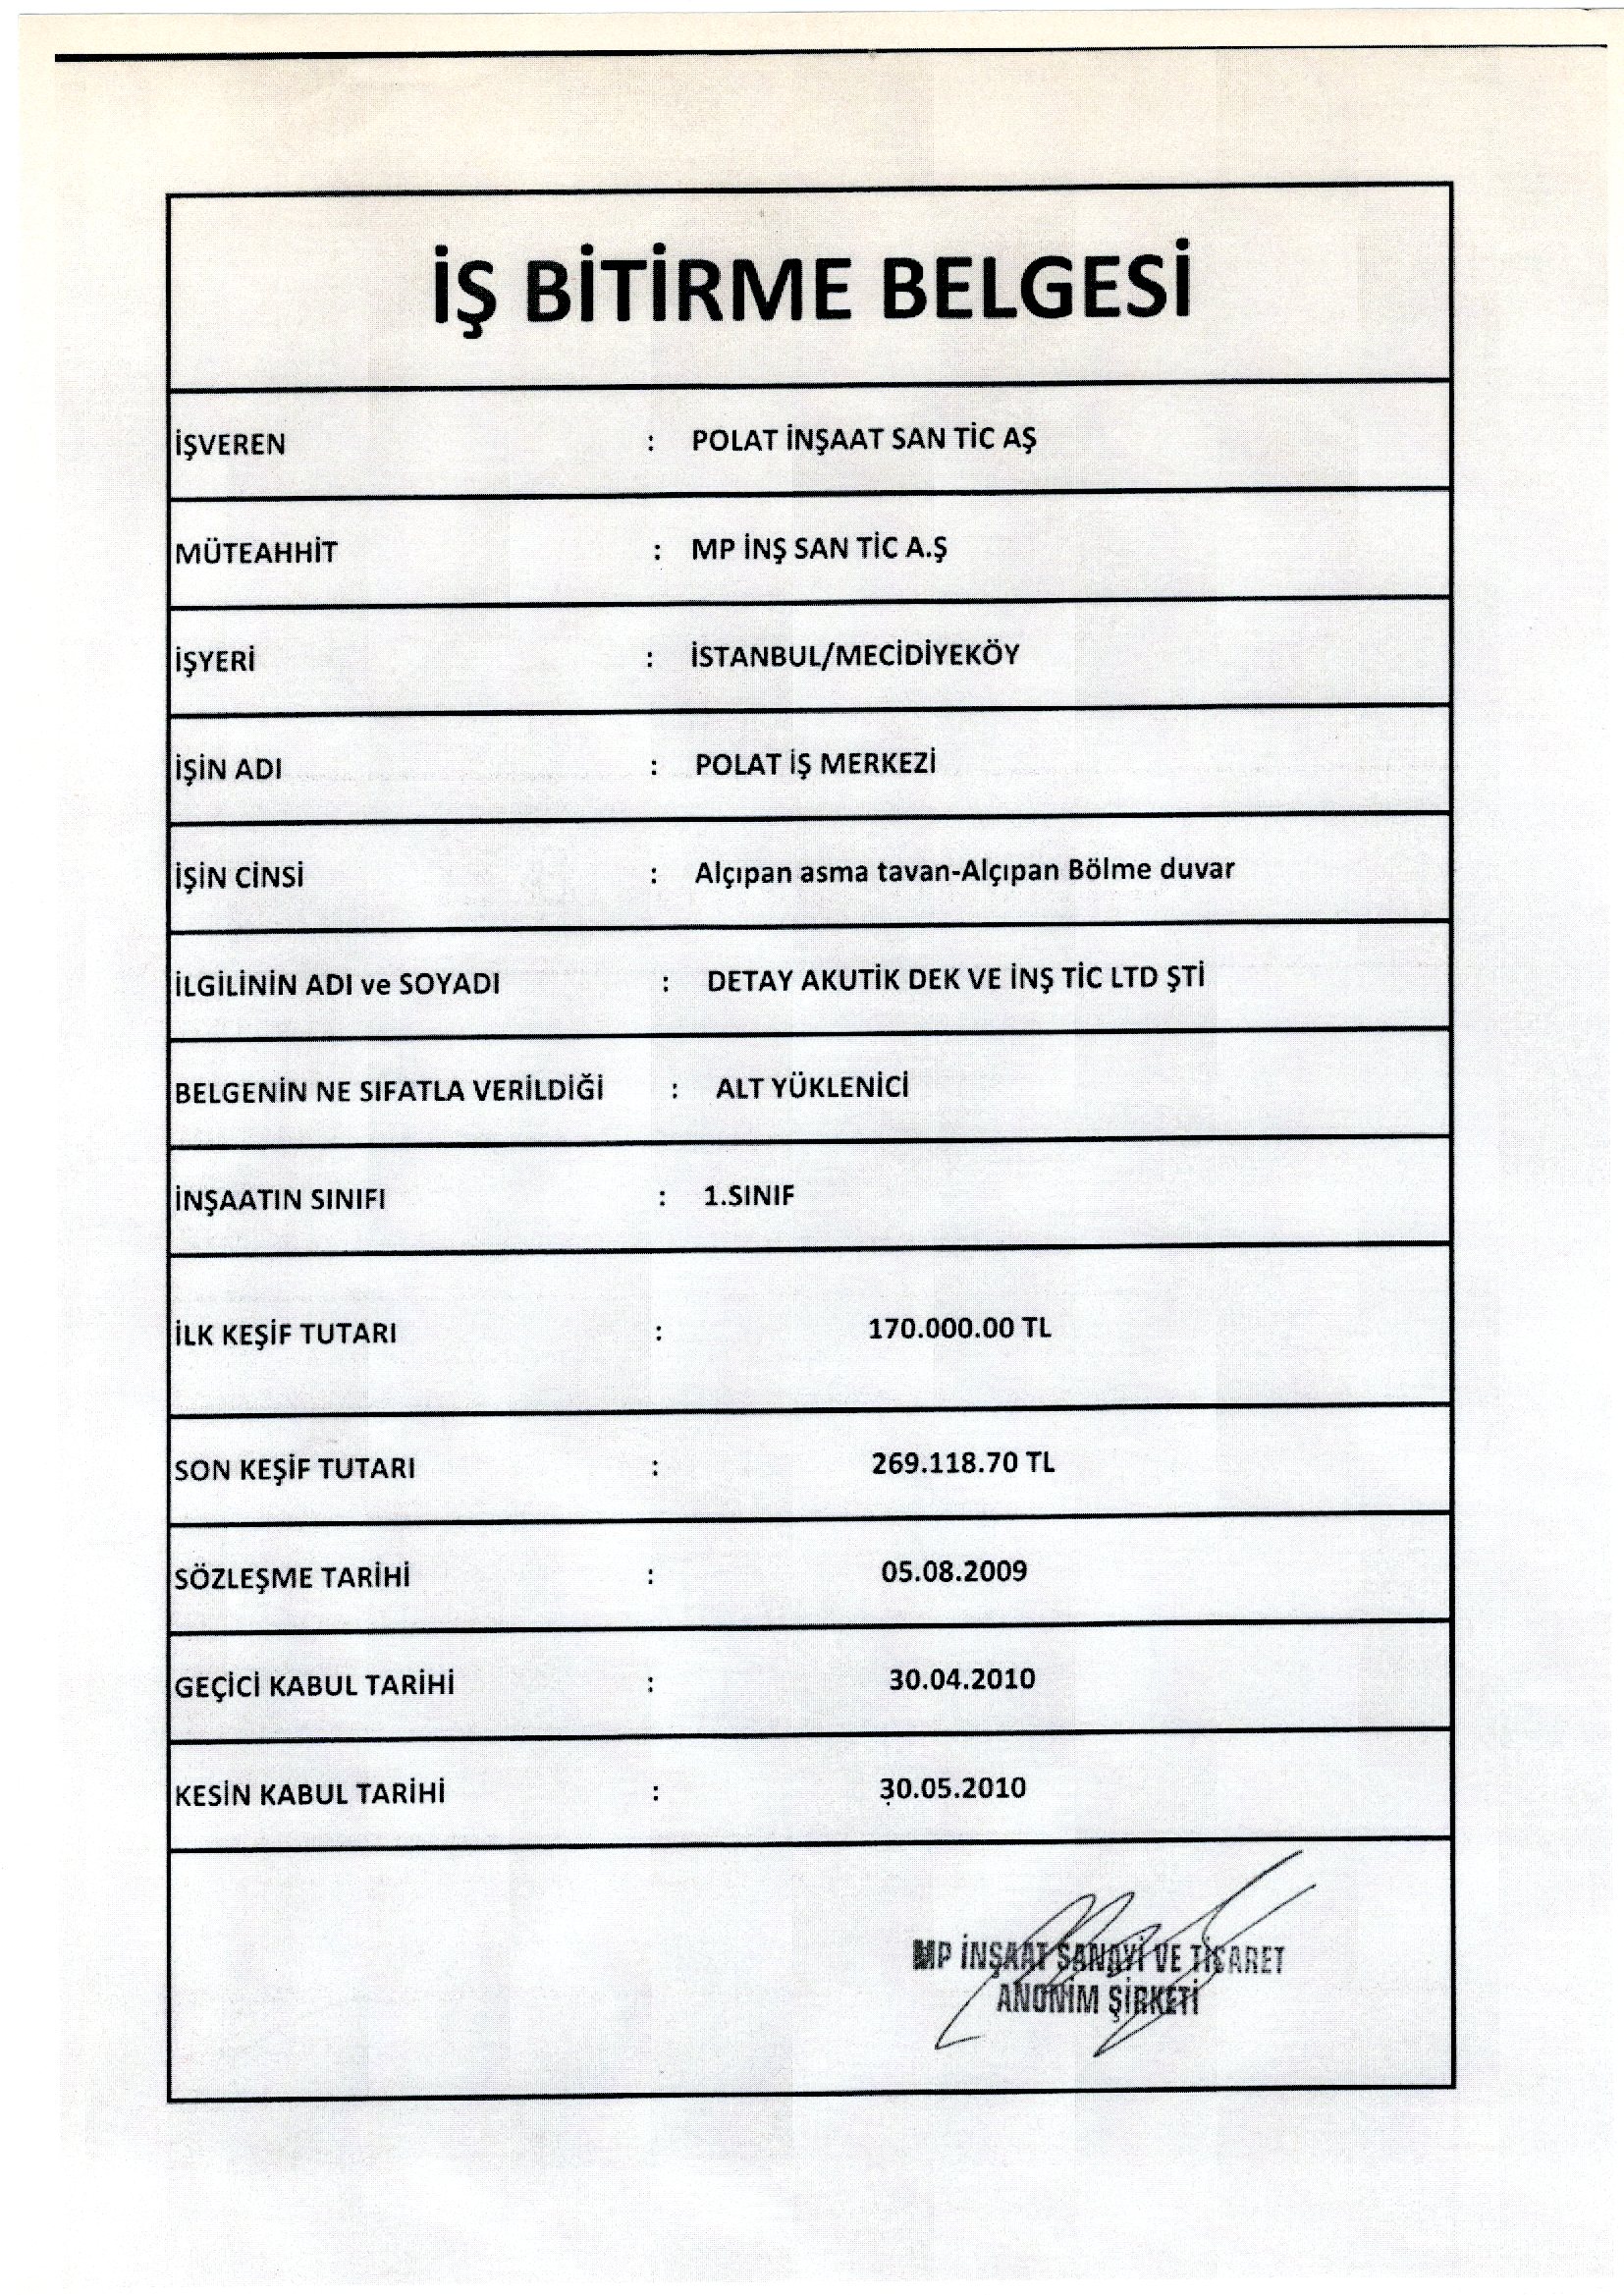 İŞ BİTİRME BELGESİ
İŞVEREN : POLAT İNŞAAT SAN TİC AŞ
MÜTEAHHİT : MP İNŞ SAN TİC A.Ş
İŞYERİ : İSTANBUL/MECİDİYEKÖY
İŞİN ADI : POLAT İŞ MERKEZİ
İŞİN CİNSİ : Alçıpan asma tavan-Alçıpan Bölme duvar
İLGİLİNİN ADI ve SOYADI : DETAY AKUTİK DEK VE İNŞ TİC LTD ŞTİ
BELGENİN NE SIFATLA VERİLDİĞİ : ALT YÜKLENİCİ
İNŞAATIN SINIFI : 1.SINIF
İLK KEŞİF TUTARI : 170.000.00 TL
SON KEŞİF TUTARI : 269.118.70 TL
SÖZLEŞME TARİHİ : 05.08.2009
GEÇİCİ KABUL TARİHİ : 30.04.2010
KESİN KABUL TARİHİ : 30.05.2010
MP İNŞAAT SANAYİ VE TİCARET
ANONİM ŞİRKETİ